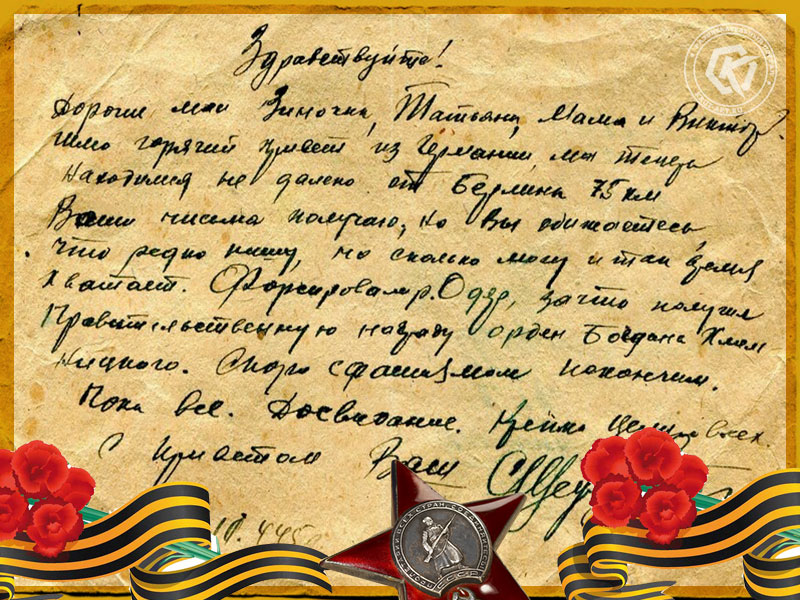 Здравствуйте!
Дорогие мои Зиночка, Татьяна, Мама и Виктор.
Шлю горячий привет из Германии, мы теперь
находимся не далеко от Берлина 75 км
Ваши письма получаю, но Вы обижаетесь
что редко пишу, но сколько могу и так время
хватает. Форсировали р. Одер, за что получил
Правительственную награду орден Богдана Хмель
ницкого. Скоро с фашизмом покончим.
Пока все. Досвидание. Крепко целую всех.
С приветом Ваш